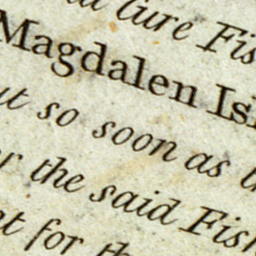 cure Fis
Magdalen Isl
ut so soon as
the said Fish
for th